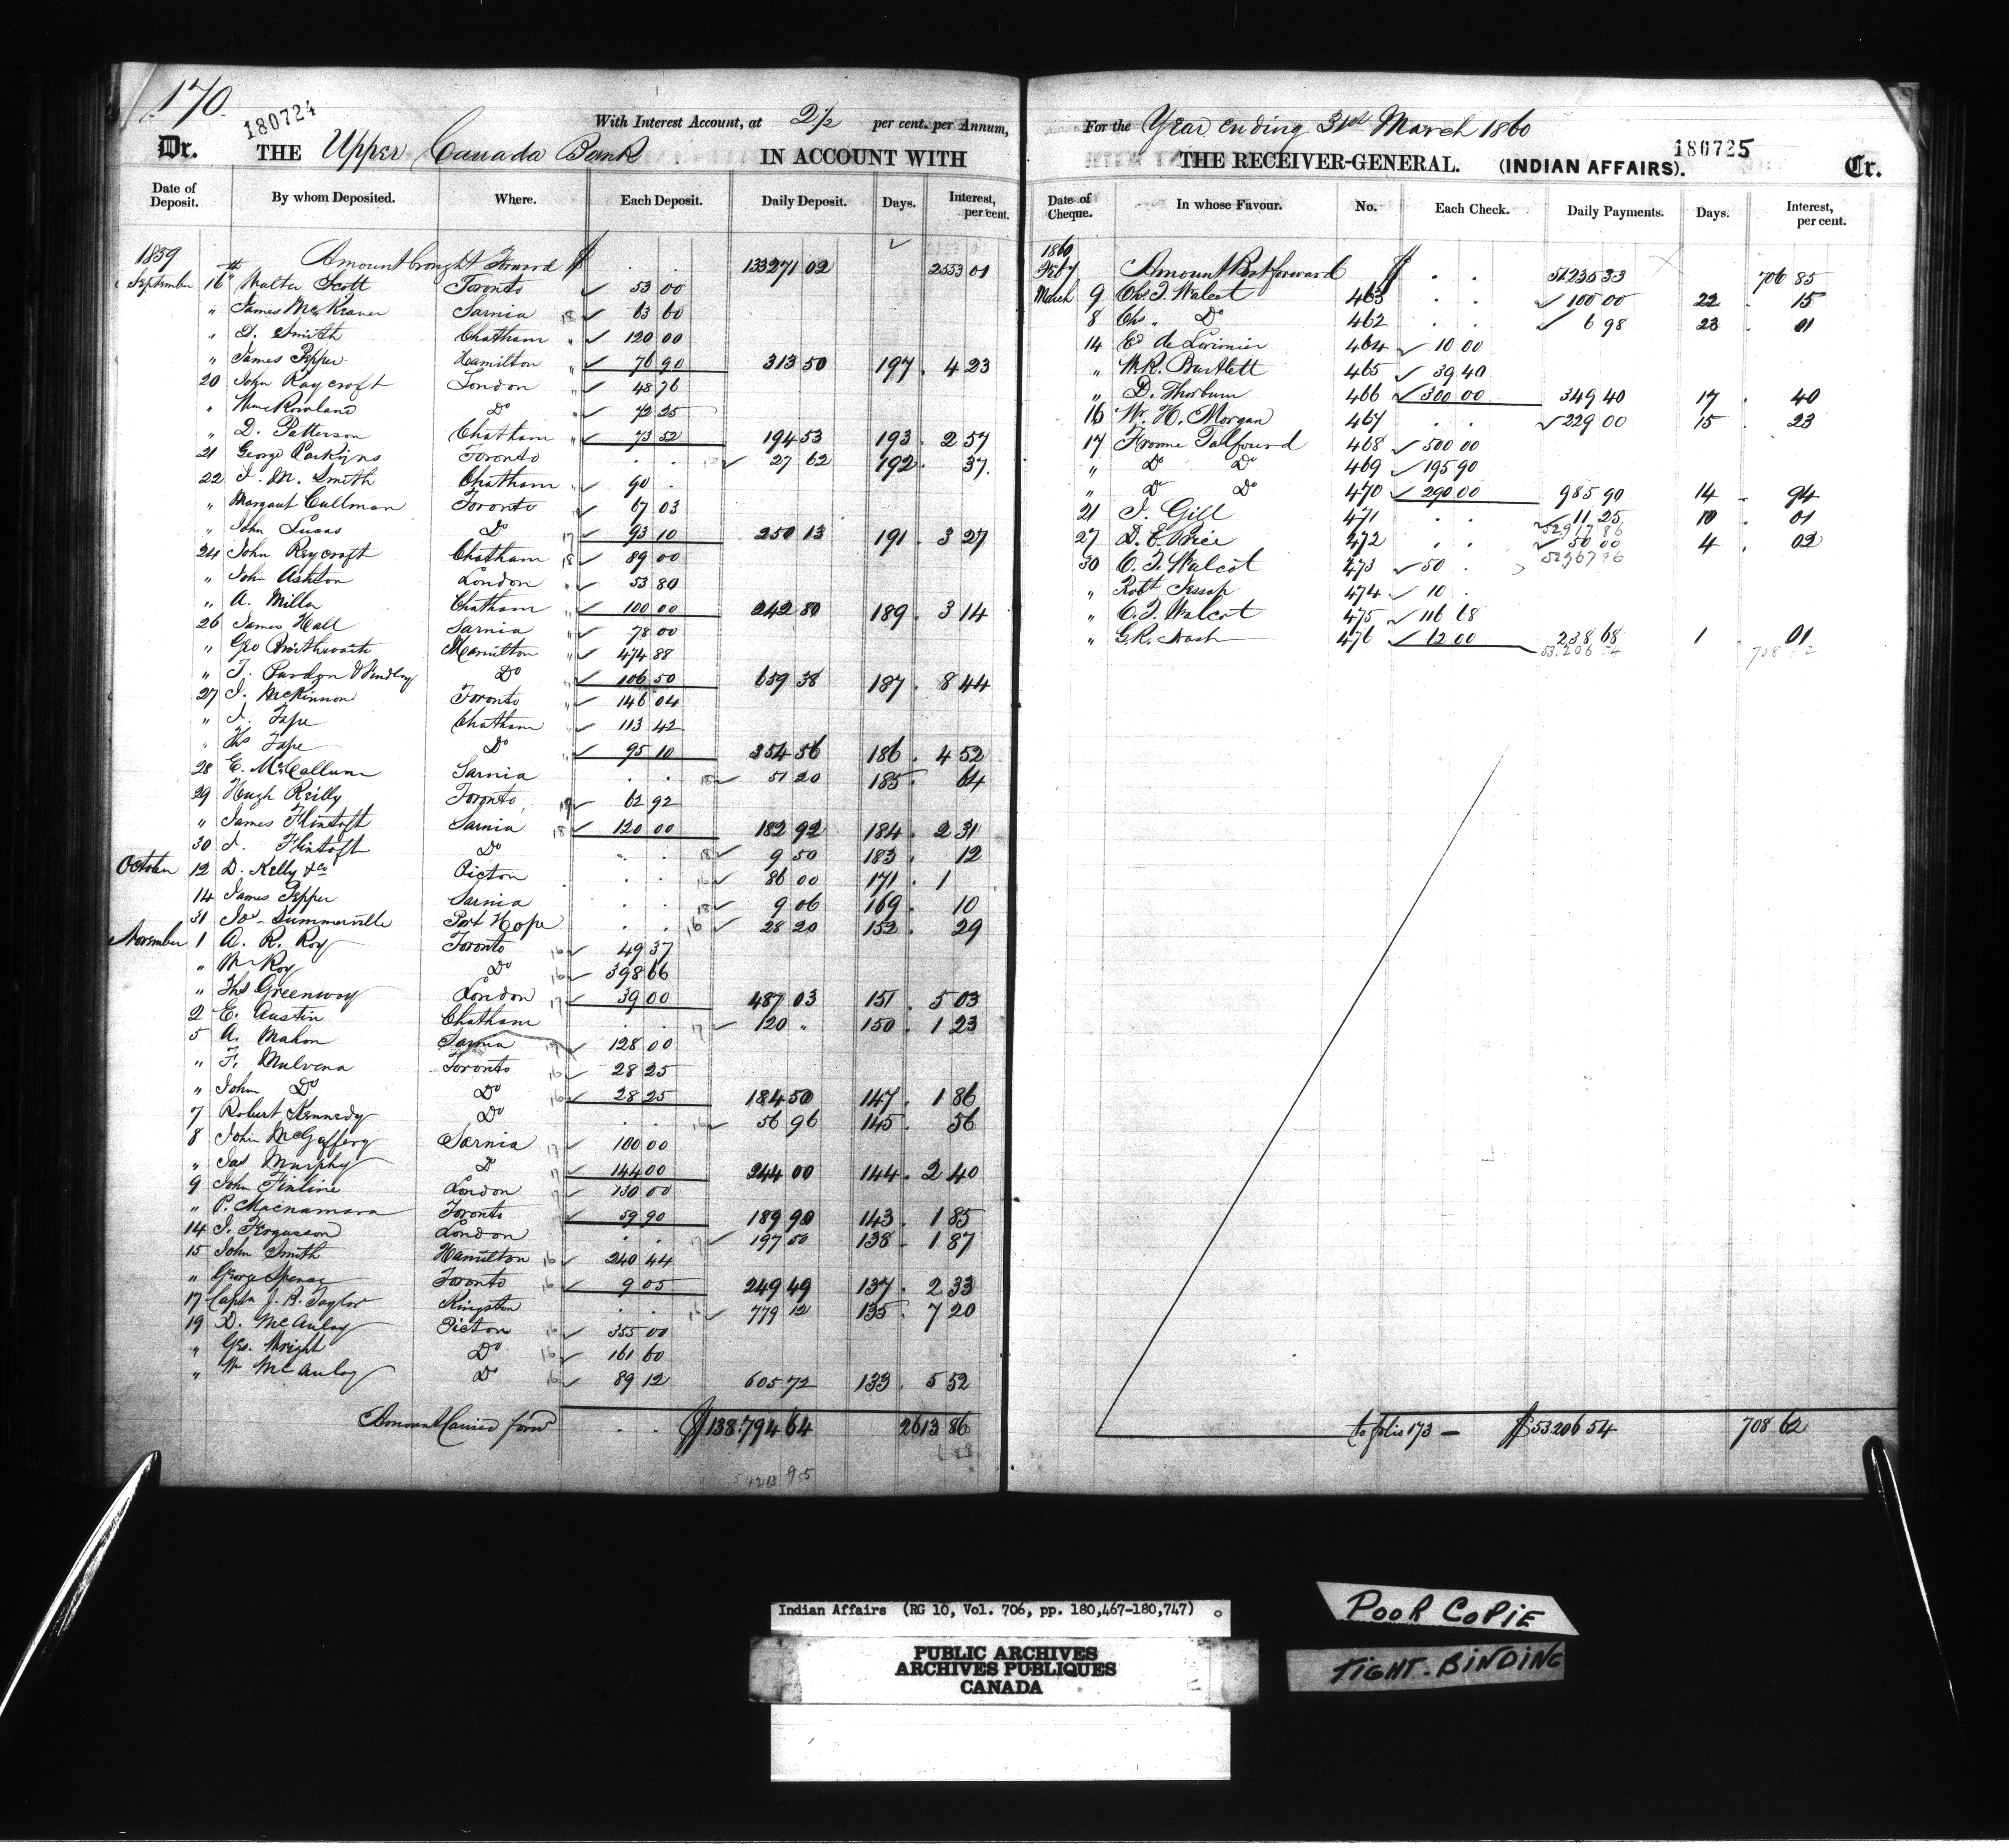 170.
180724
With Interest Account, at 2½ per cent. per Annum,
Dr. THE Upper Canada Bank IN ACCOUNT WITH
Date of Deposit. By whom Deposited. Where. Each Deposit. Daily Deposit. Days. Interest, per cent.
1859 Amount brought Forward $ . . 133271 02 2553 01
September 16th Walter Scott Toronto 53 00
" James McKraver Sarnia 63 60
" D. Smith Chatham 120 00
" James Pepper Hamilton 76 90 313 50 197 . 4 23
20 John Raycroft London 48 76
" Wm Rowland Do 72 25
" D. Patterson Chatham 73 52 194 53 193 . 2 57
21 George Perkins Toronto . . 27 62 192 . 37
22 J. M. Smith Chatham 90 .
" Margaret Cullman Toronto 67 03
" John Lucas Do 93 10 250 13 191 . 3 27
24 John Raycroft Chatham 89 00
" John Ashton London 53 80
" A. Miller Chatham 100 00 242 80 189 . 3 14
26 James Hall Sarnia 78 00
" Geo Hamilton 474 88
" T. Purdon & Findlay Do 106 50 659 38 187 . 8 44
27 J. McKinnon Toronto 146 04
" J. Tape Chatham 113 42
" Ths Tape Do 95 10 354 56 186 . 4 52
28 E. McCallum Sarnia . . 51 20 185 . 64
29 Hugh Reilly Toronto 62 92
" James Flintoft Sarnia 120 00 182 92 184 . 2 31
30 J. Flintoft Do . . 9 50 183 . 12
October 12 D. Kelly & Co Picton . . 86 00 171 . 1
14 James Pepper Sarnia . . 9 06 169 . 10
31 Jos Summerville Port Hope . . 28 20 152 . 29
November 1 A. R. Roy Toronto 49 37
" Roy Do 398 66
" Ths Greenway London 39 00 487 03 151 . 5 03
2 E. Austin Chatham . . 120 " 150 . 1 23
5 A. Mahon Sarnia 128 00
" F. Mulvena Toronto 28 25
" John Do Do 28 25 184 50 147 . 1 86
7 Robert Kennedy Do . . 56 96 145 . 56
8 John McGaffery Sarnia 100 00
" Jas Murphy Do 144 00 244 00 144 . 2 40
9 John Finline London 130 00
" P. Macnamara Toronto 59 90 189 90 143 . 1 85
14 J. Fergusson London . . 197 50 138 . 1 87
15 John Smith Hamilton 240 44
" George Spence Toronto 9 05 249 49 137 . 2 33
17 Captn J. B. Taylor Kingston . . 779 12 135 . 7 20
19 D. McAulay Picton 355 00
" Geo. Wright Do 161 60
" W McAulay Do 89 12 605 72 133 . 5 52
Amount Carried forwd . . $138.794 64 2613 86
For the Year ending 31st March 1860
THE RECEIVER-GENERAL. (INDIAN AFFAIRS). 180725 Cr.
Date of Cheque. In whose Favour. No. Each Check. Daily Payments. Days. Interest, per cent.
1860
Feby Amount Bot forward $ . . 51235 33 706 85
March 9 Chs. T. Walcot 463 . . 100 00 22 . 15
8 Chs " Do 462 . . 6 98 23 . 01
14 E de Lorimier 464 10 00
" W. R. Bartlett 465 39 40
" D. Thorburn 466 300 00 349 40 17 . 40
16 W. H. Morgan 467 . . 229 00 15 . 23
17 Froome Talfourd 468 500 00
" Do Do 469 195 90
" Do Do 470 290 00 985 90 14 . 94
21 J. Gill 471 . . 11 25 10 . 01
52917 86
27 D. E. Price 472 . . 50 00 4 . 02
52967 86
30 C. T. Walcot 473 50 .
" Robt Jessop 474 10 .
" C. T. Walcot 475 116 68
" G. R. Dash 476 62 00 238 68 1 . 01
53.206 54 708 62
to folio 173 — $53206 54 708 62
Indian Affairs (RG 10, Vol. 706, pp. 180,467-180,747)
PUBLIC ARCHIVES
ARCHIVES PUBLIQUES
CANADA
POOR COPIE
TIGHT. BINDING